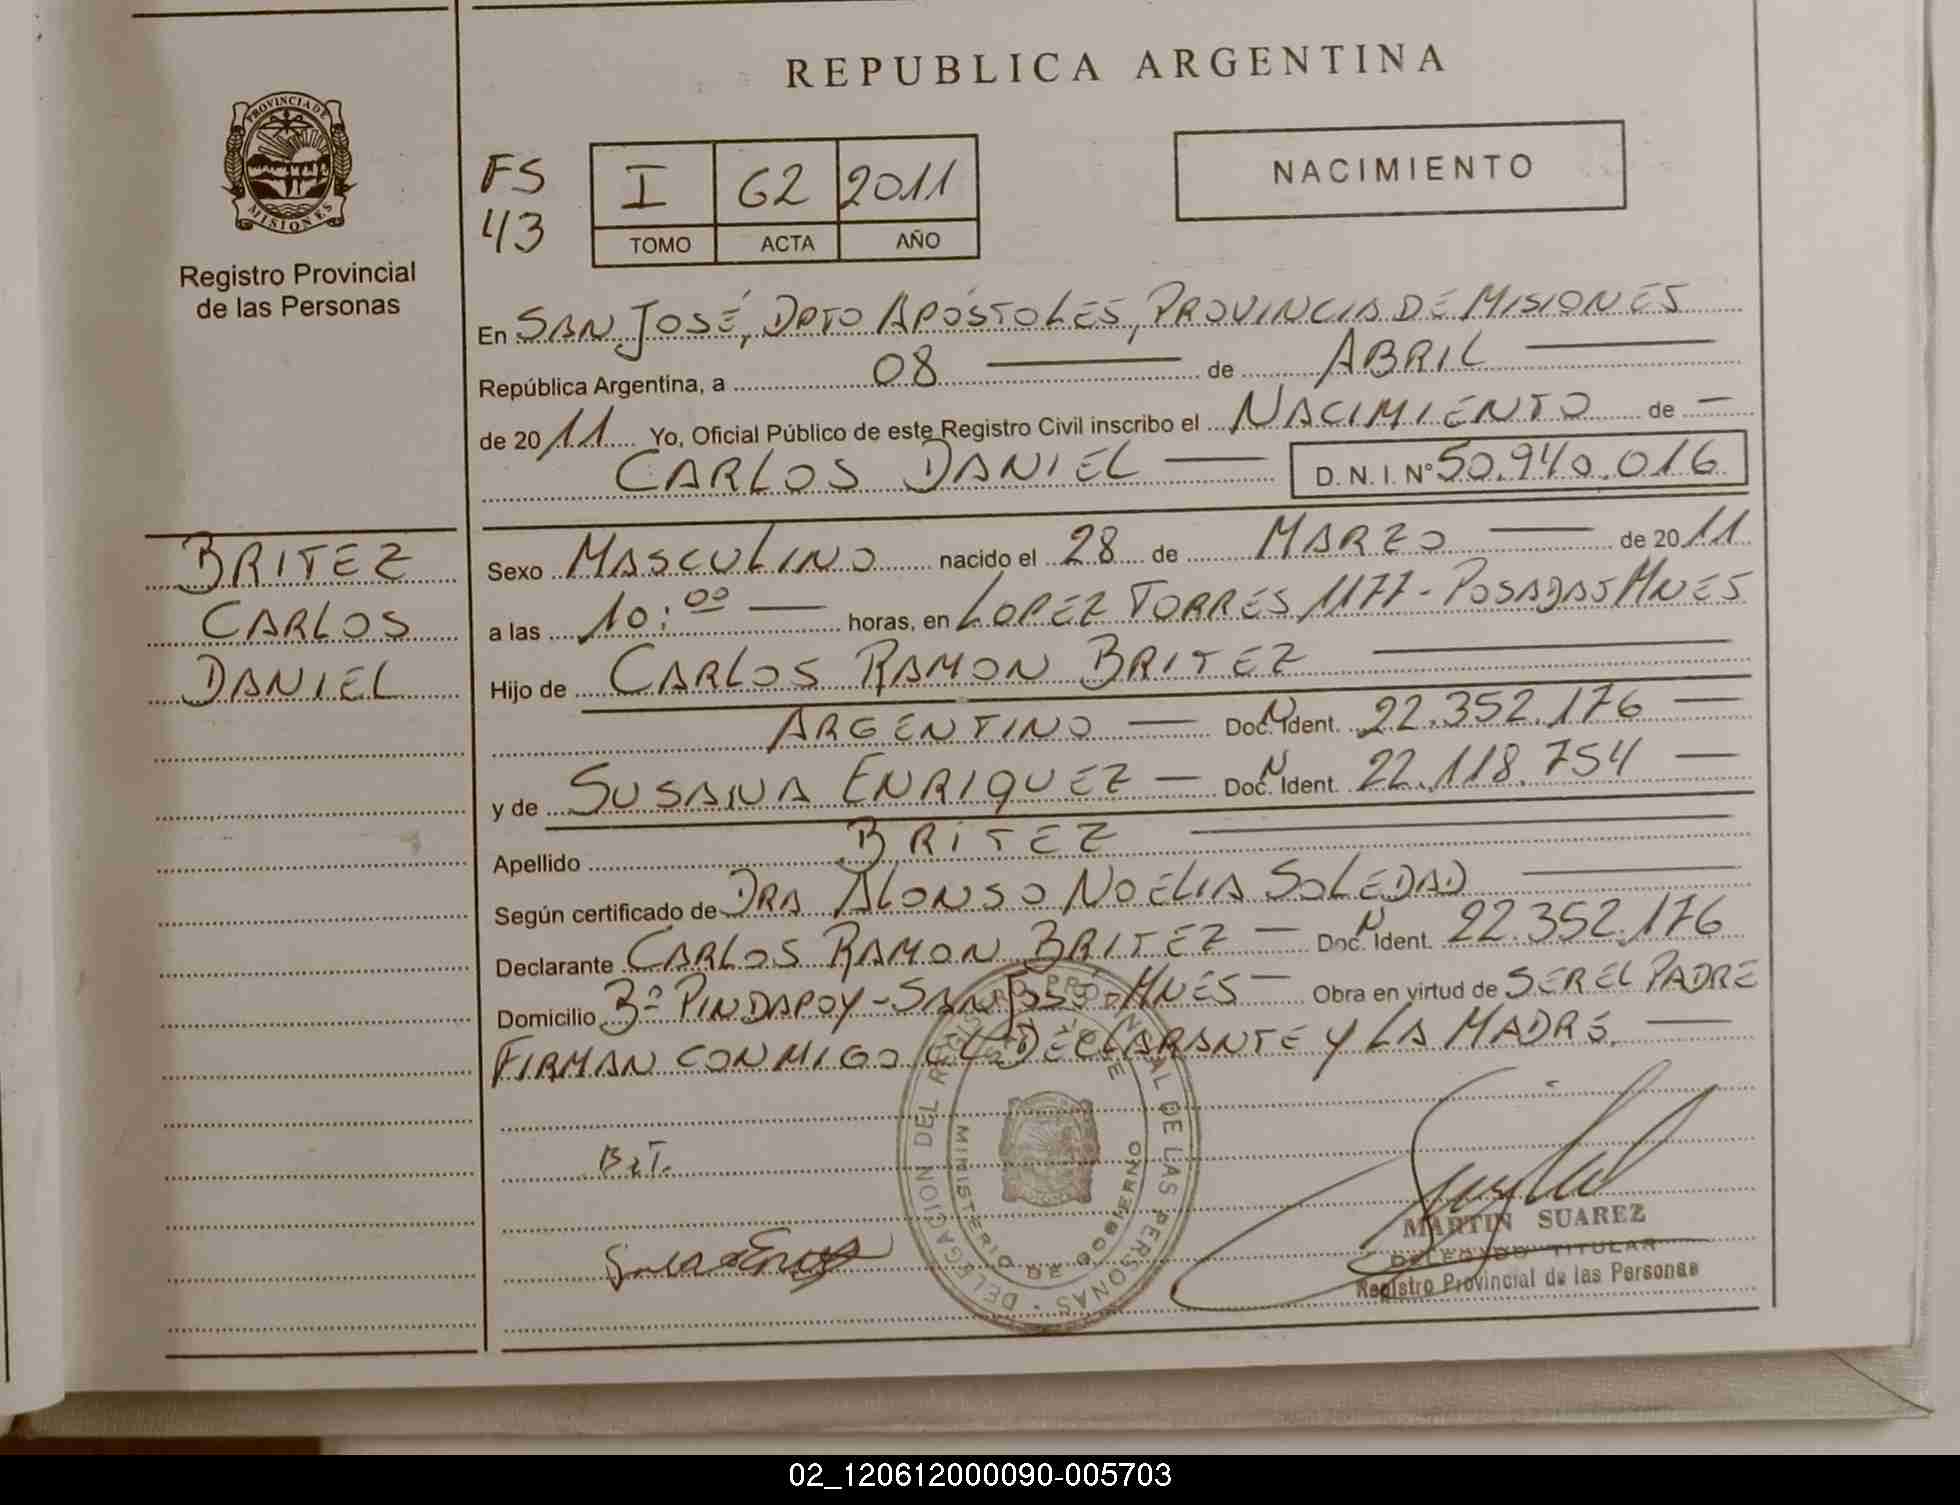 REPUBLICA ARGENTINA
PROVINCIA DE MISIONES
Registro Provincial
de las Personas
FS
43
I 62 2011
TOMO ACTA AÑO
NACIMIENTO
En SAN JOSÉ, DPTO APÓSTOLES, PROVINCIA DE MISIONES
República Argentina, a 08 de ABRIL
de 2011 Yo, Oficial Público de este Registro Civil inscribo el NACIMIENTO de —
CARLOS DANIEL — D.N.I. Nº 50.940.016
BRITEZ
CARLOS
DANIEL
Sexo MASCULINO nacido el 28 de MARZO — de 2011
a las 10:00 — horas, en LOPEZ TORRES 1177 - POSADAS MNES
Hijo de CARLOS RAMON BRITEZ —
ARGENTINO — Doc. N Ident. 22.352.176 —
y de SUSANA ENRIQUEZ — Doc. N Ident. 22.118.754 —
Apellido BRITEZ —
Según certificado de DRA ALONSO NOELIA SOLEDAD —
Declarante CARLOS RAMON BRITEZ — Doc. N Ident. 22.352.176
Domicilio Bº PINDAPOY - SAN JOSÉ - MNES — Obra en virtud de SER EL PADRE
FIRMAN CONMIGO EL DECLARANTE Y LA MADRE. —
DELEGACION DEL REGISTRO PROVINCIAL DE LAS PERSONAS
MINISTERIO DE GOBIERNO
MARTIN SUAREZ
DELEGADO TITULAR
Registro Provincial de las Personas
02_120612000090-005703